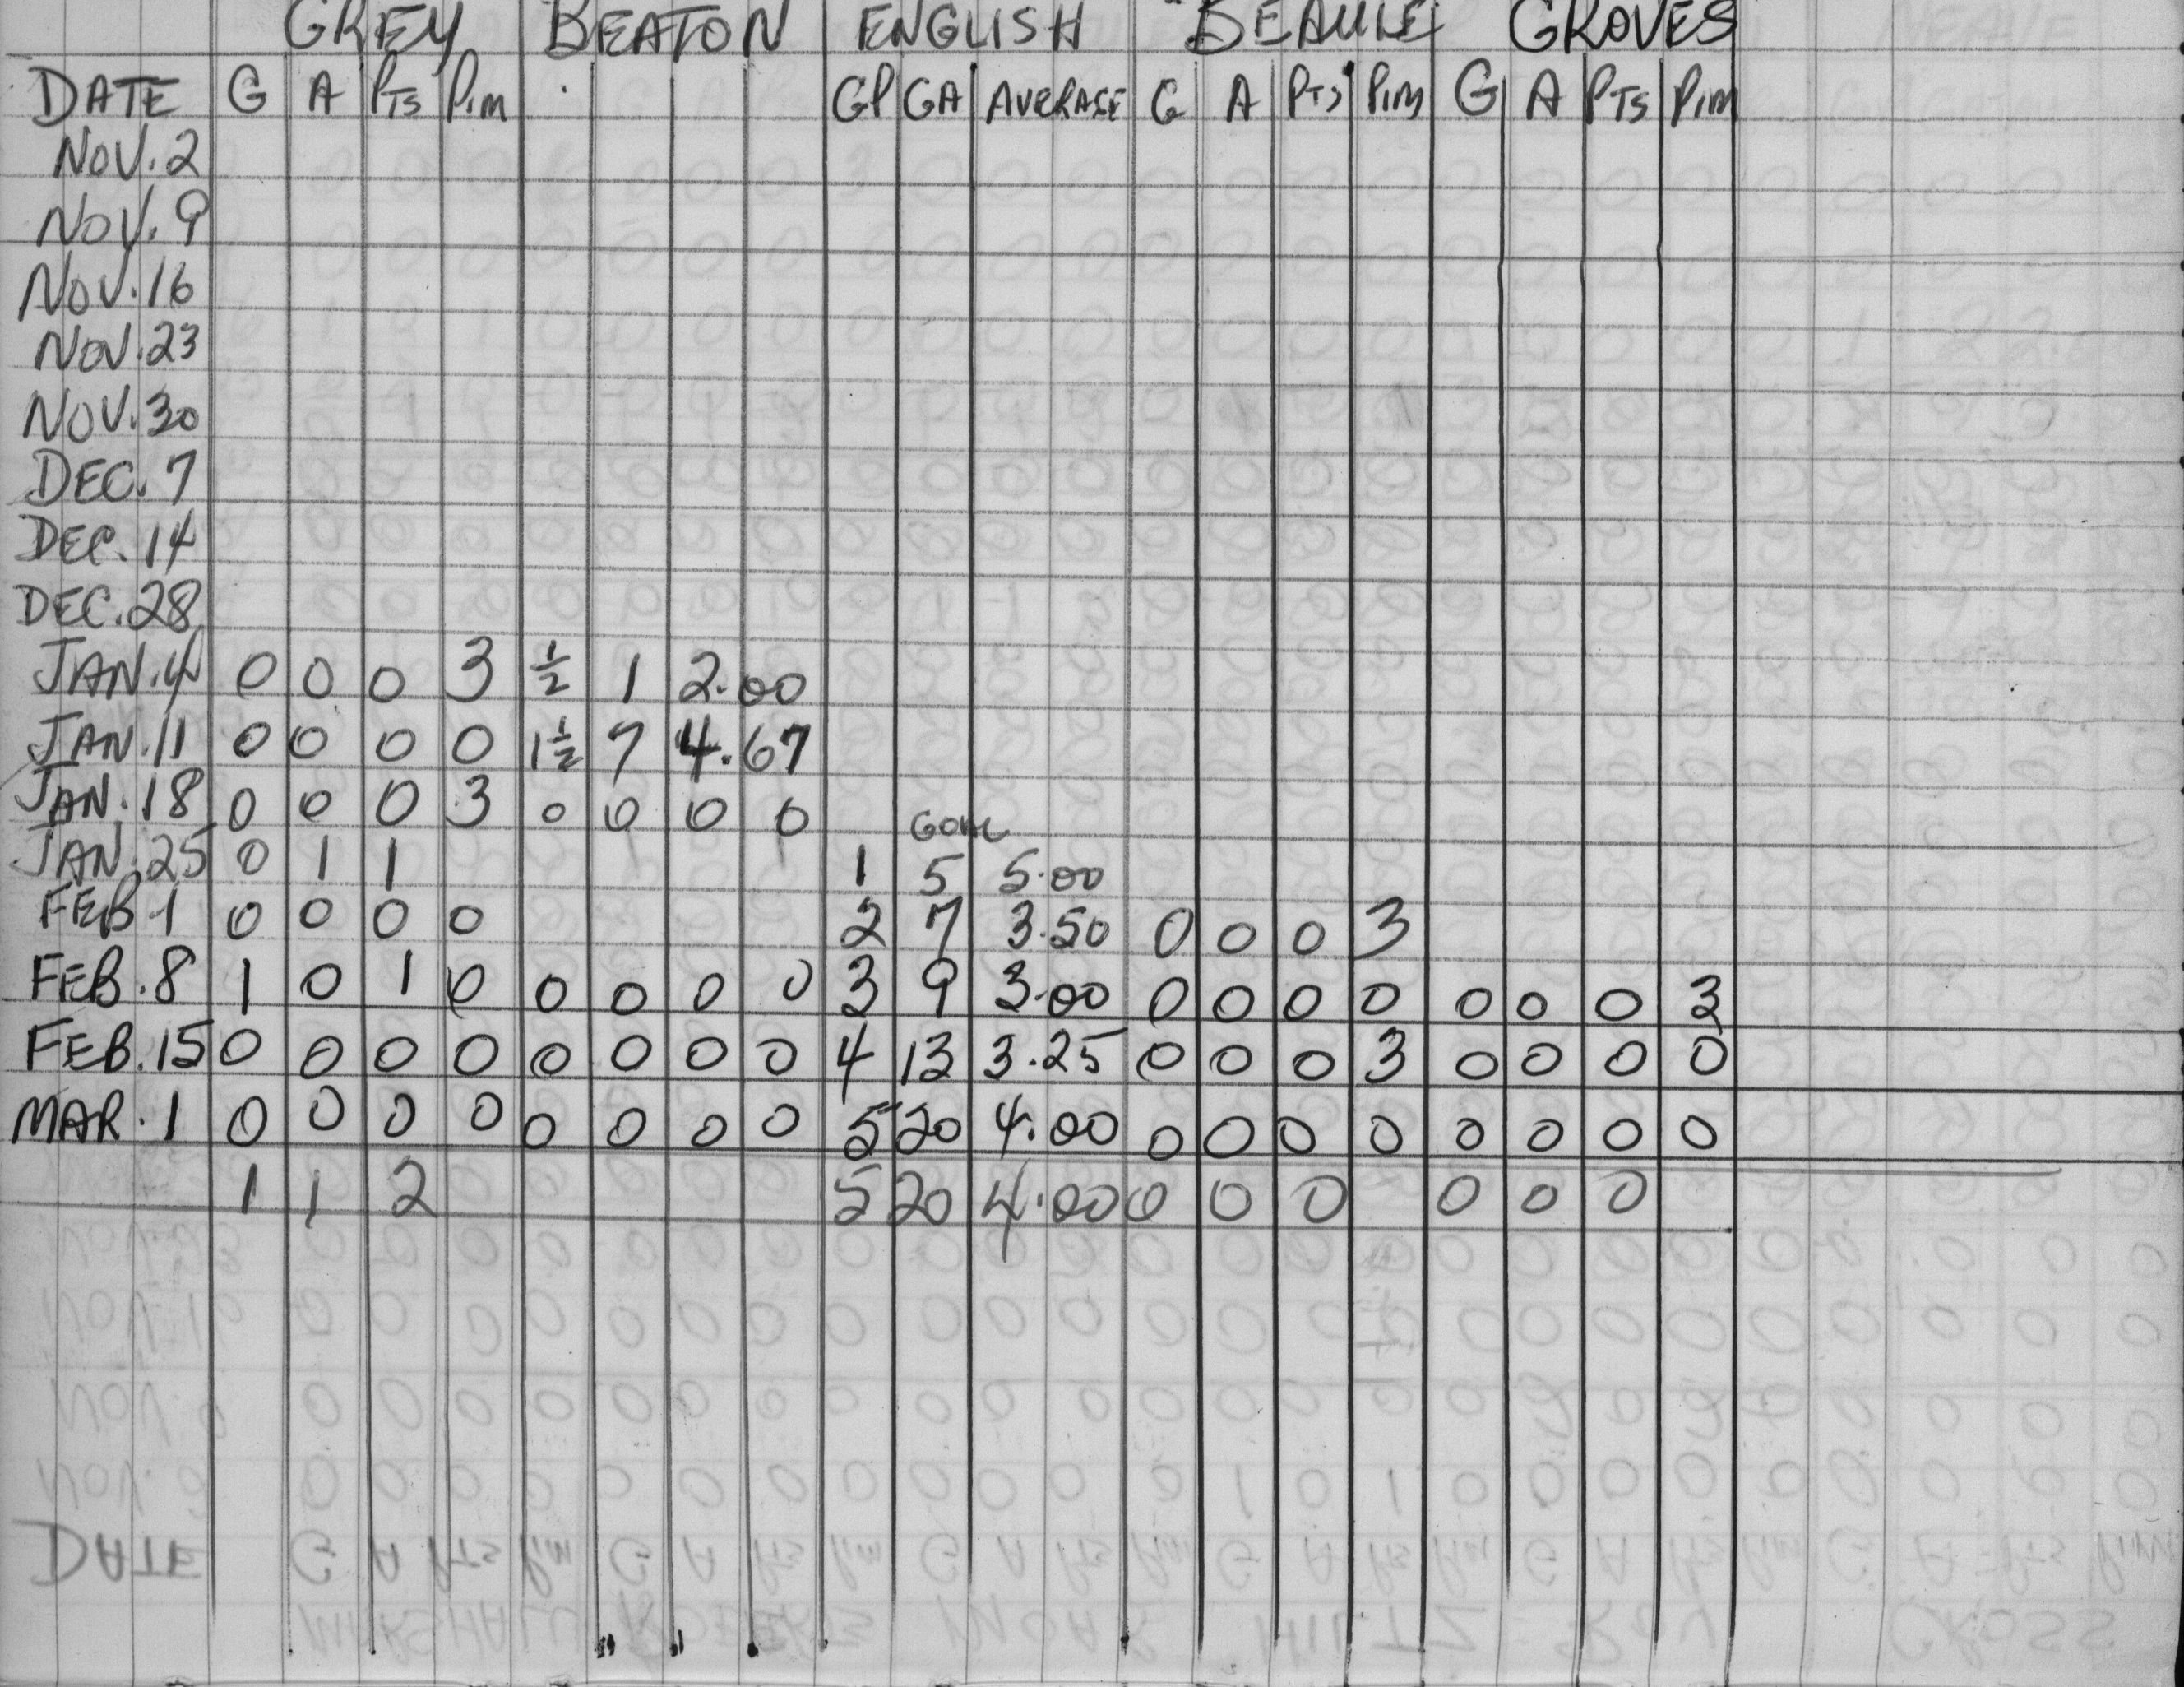 GREY BEATON ENGLISH BEAULE GROVES
DATE G A PTS Pim GP GA AVERAGE G A PTS Pim G A PTS Pim
NOV. 2
NOV. 9
NOV. 16
NOV. 23
NOV. 30
DEC. 7
DEC. 14
DEC. 28
JAN. 4 0 0 0 3 ½ 1 2.00
JAN. 11 0 0 0 0 1½ 7 4.67
JAN. 18 0 0 0 3 0 0 0 0
JAN. 25 0 1 1 1 5 5.00
FEB 1 0 0 0 0 2 7 3.50 0 0 0 3
FEB. 8 1 0 1 0 0 0 0 0 3 9 3.00 0 0 0 0 0 0 0 3
FEB. 15 0 0 0 0 0 0 0 0 4 13 3.25 0 0 0 3 0 0 0 0
MAR. 1 0 0 0 0 0 0 0 0 5 20 4.00 0 0 0 0 0 0 0 0
1 1 2 5 20 4.00 0 0 0 0 0 0